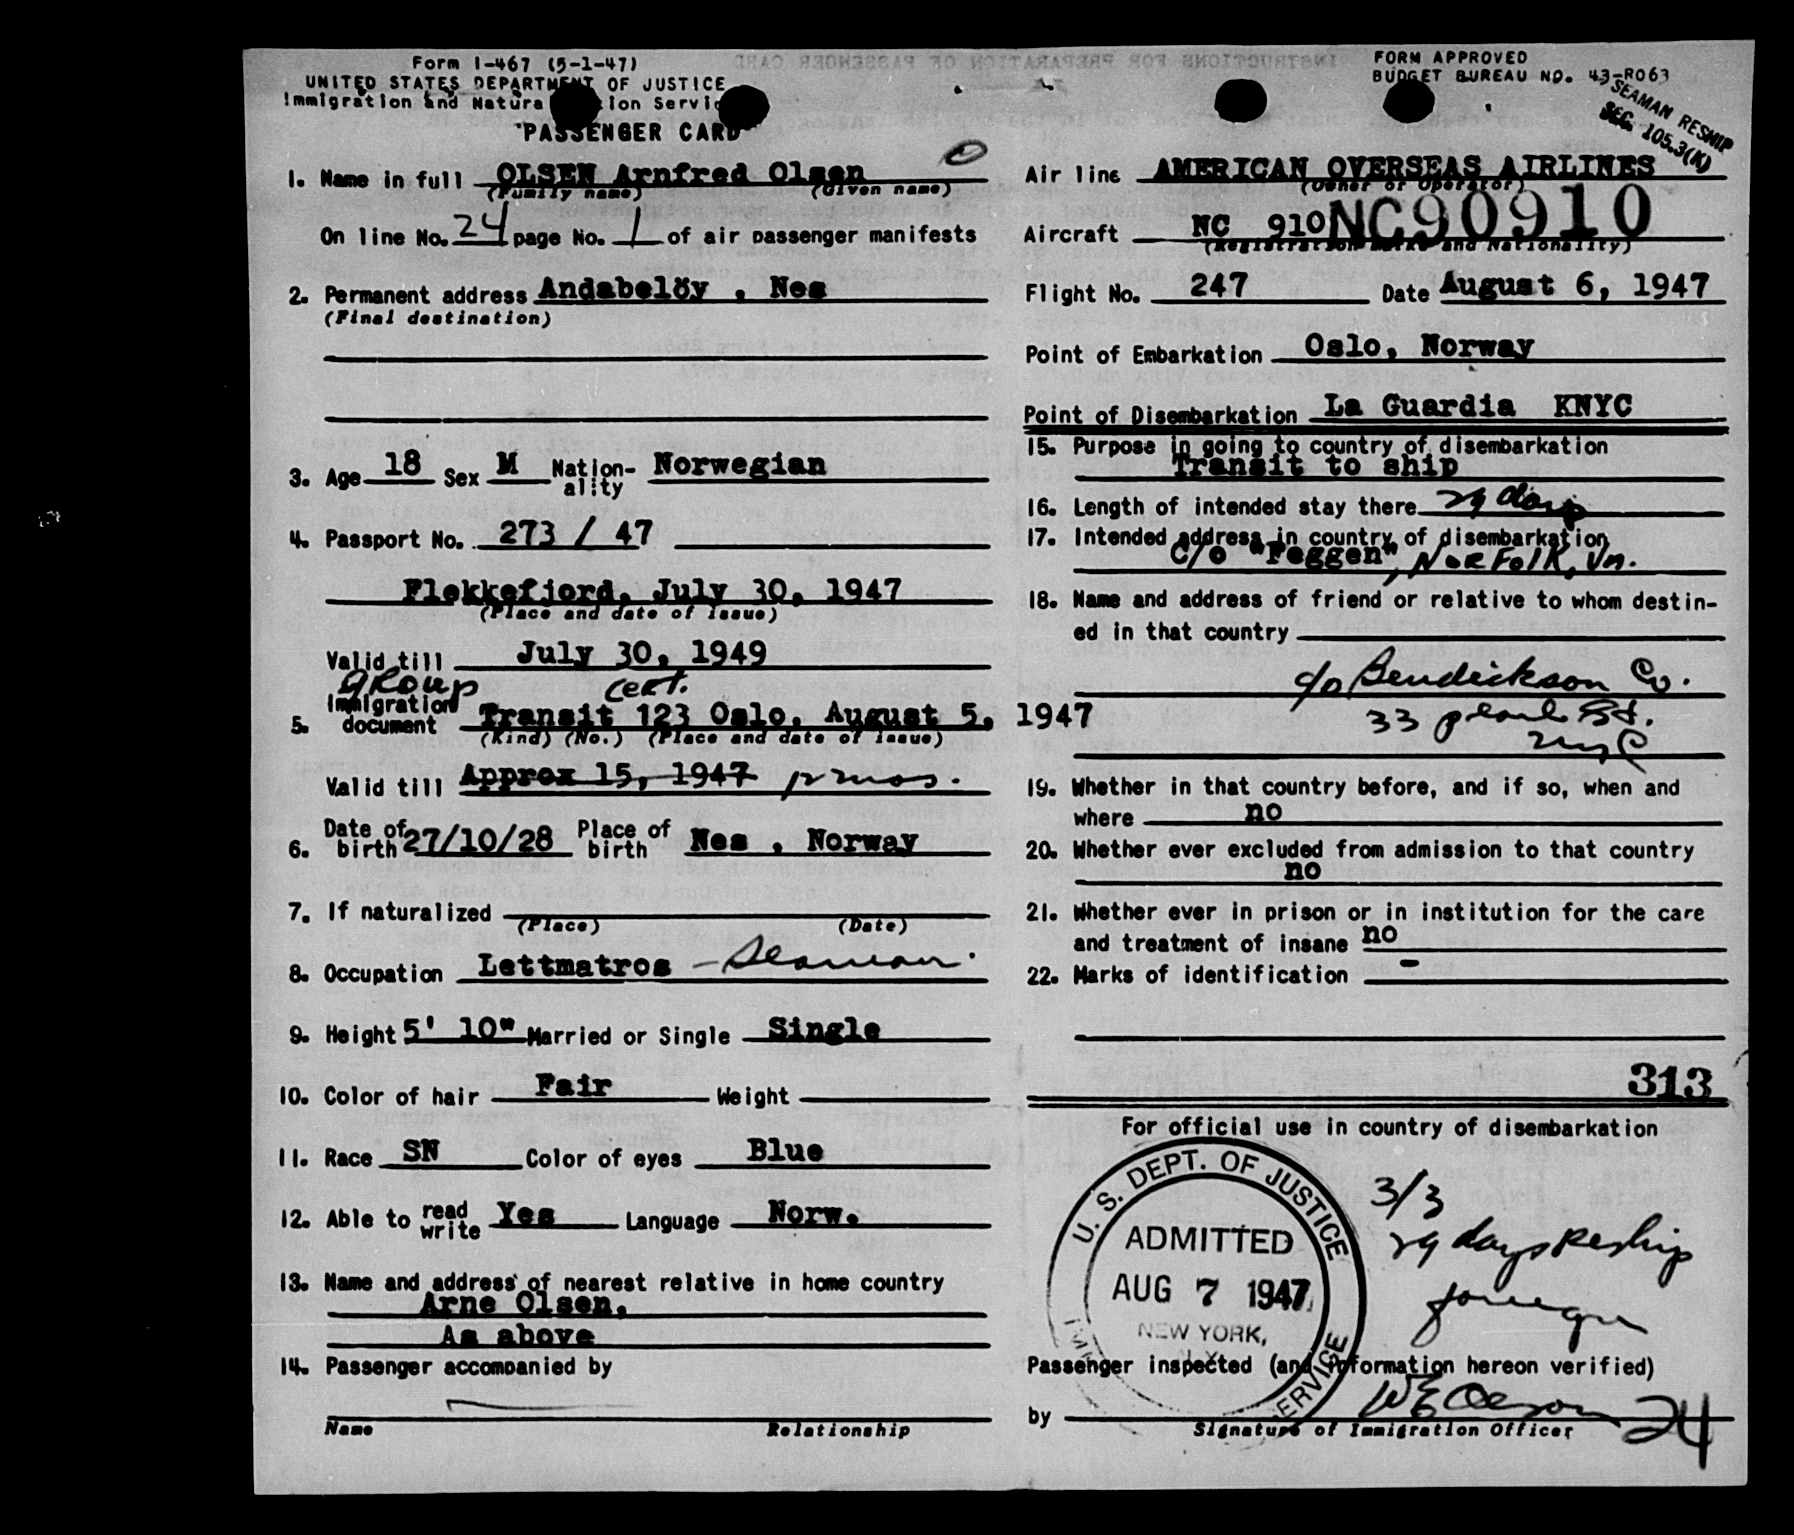 Form I-467 (5-1-47)
UNITED STATES DEPARTMENT OF JUSTICE
Immigration and Natura tion Servic
PASSENGER CARD
1. Name in full OLSEN Arnfred Olsen
(Family name) (Given name)
On line No. 24 page No. 1 of air passenger manifests
2. Permanent address Andabelöy , Nes
(Final destination)
3. Age 18 Sex M Nation-ality Norwegian
4. Passport No. 273 / 47
Flekkefjord, July 30, 1947
(Place and date of issue)
Valid till July 30, 1949
group cert.
5. Immigration document Transit 123 Oslo, August 5, 1947
(Kind) (No.) (Place and date of issue)
Valid till Approx 15, 1947 mos.
6. Date of birth 27/10/28 Place of birth Nes , Norway
7. If naturalized
(Place) (Date)
8. Occupation Lettmatros - Seaman.
9. Height 5' 10" Married or Single Single
10. Color of hair Fair Weight
11. Race SN Color of eyes Blue
12. Able to read write Yes Language Norw.
13. Name and address of nearest relative in home country
Arne Olsen,
As above
14. Passenger accompanied by
Name Relationship
FORM APPROVED
BUDGET BUREAU NO. 43-R063
SEAMAN RESHIP
SEC. 105.3(K)
Air line AMERICAN OVERSEAS AIRLINES
(Owner or Operator)
Aircraft NC 910 NC90910
(Registration Marks and Nationality)
Flight No. 247 Date August 6, 1947
Point of Embarkation Oslo, Norway
Point of Disembarkation La Guardia KNYC
15. Purpose in going to country of disembarkation
Transit to ship
16. Length of intended stay there 29 days
17. Intended address in country of disembarkation
c/o "Feggen", Norfolk, Va.
18. Name and address of friend or relative to whom destin-
ed in that country
c/o Bendickson Co.
33 pearl St.
NYC
19. Whether in that country before, and if so, when and
where no
20. Whether ever excluded from admission to that country
no
21. Whether ever in prison or in institution for the care
and treatment of insane no
22. Marks of identification -
313
For official use in country of disembarkation
U. S. DEPT. OF JUSTICE
ADMITTED
AUG 7 1947
NEW YORK,
3/3
29 days Reship
foreign
Passenger inspected (and information hereon verified)
by 24
Signature of Immigration Officer